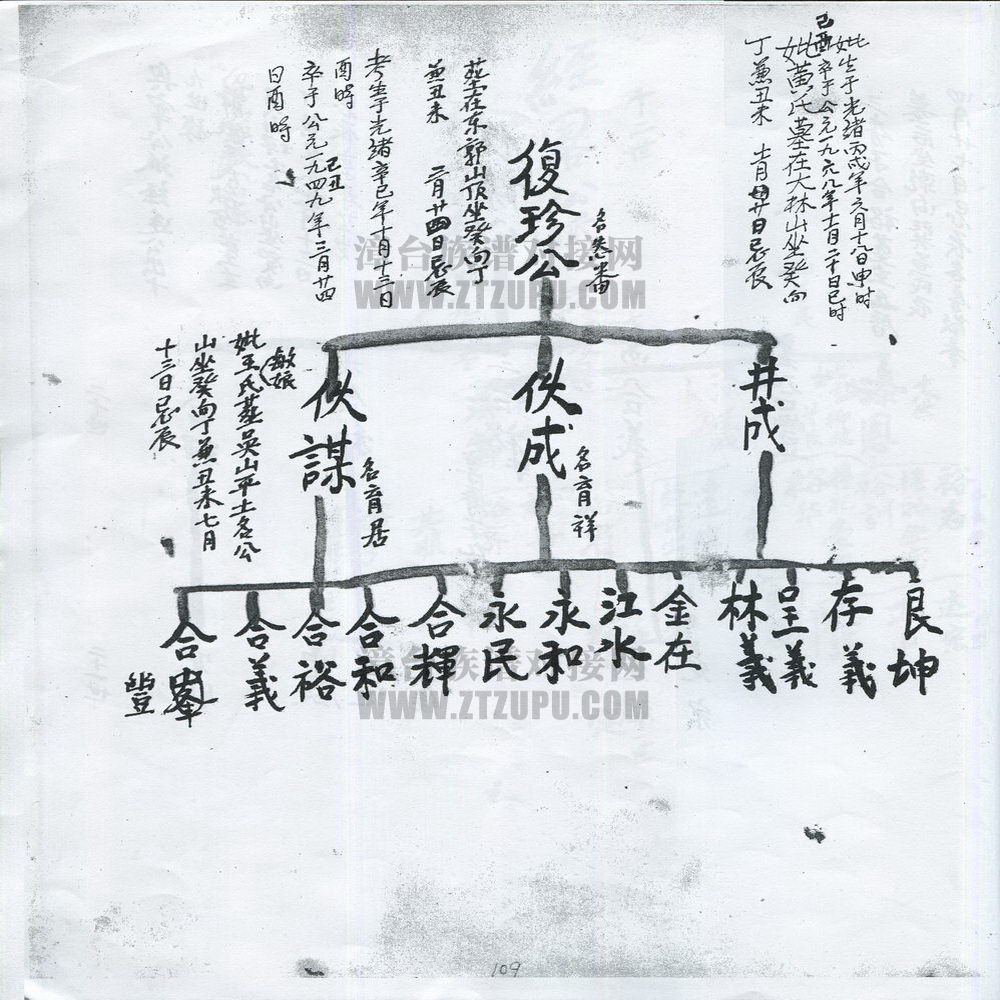 妣生于光绪丙戌年六月十八日申时
己酉卒于公元一九六八年十一月二十日巳时
妣黄氏墓在大林山坐癸向
丁兼丑未 十一月廿日忌辰
復珍公
墓在东郭山顶坐癸向丁
兼丑未 三月廿四日忌辰
考生于光绪辛巳年十月十三日
酉時
卒于公元一九四九年三月廿四
己丑
日酉時
井成
伙成
名育祥
伙謀
名育居
妣王氏墓吳山平土名公
敏娘
山坐癸向丁兼丑未七月
十三日忌辰
良坤
存義
呈義
林義
金在
江水
永和
永民
合輝
合和
合裕
合義
合峯
豐
漳台族谱对接网
WWW.ZTZUPU.COM
漳台族谱对接网
WWW.ZTZUPU.COM
109